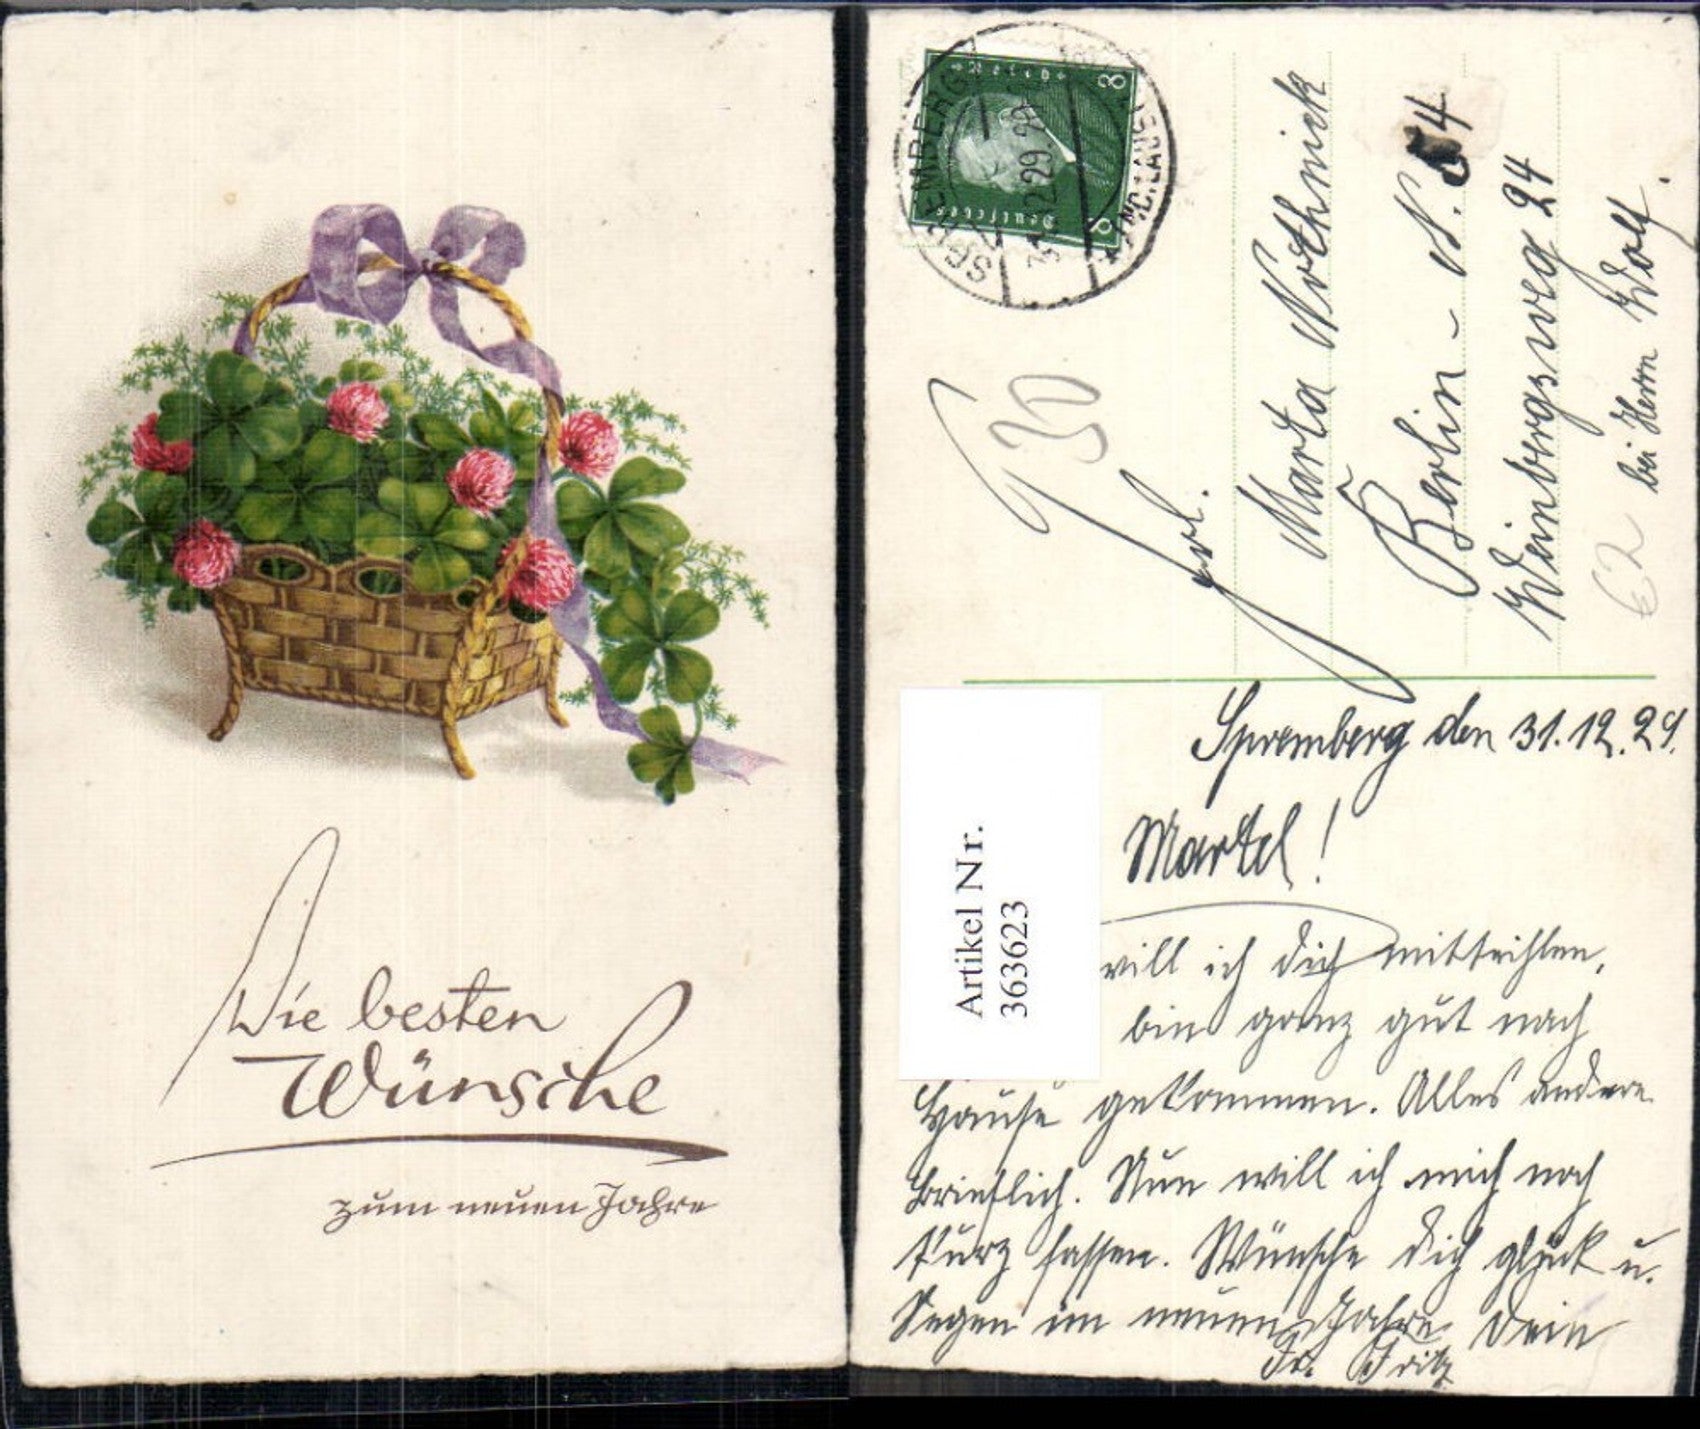 Die besten
Wünsche
zum neuen Jahre
8 Deutsches Reich 8
SPREMBERG
31.12.29
(NDR.LAUSITZ)
30
Frl.
Marta Nothnick
Berlin - N. 54
Weinbergsweg 24
bei Herrn Wolf.
€2
Artikel Nr.
363623
Spremberg den 31.12.29.
Martel!
will ich dich mitteihlen,
bin ganz gut nach
Hause gekommen. Alles andere
brieflich. Nun will ich mich noch
kurz fassen. Wünsche dich glück u.
Segen im neuen Jahre Dein
Fr. Fritz